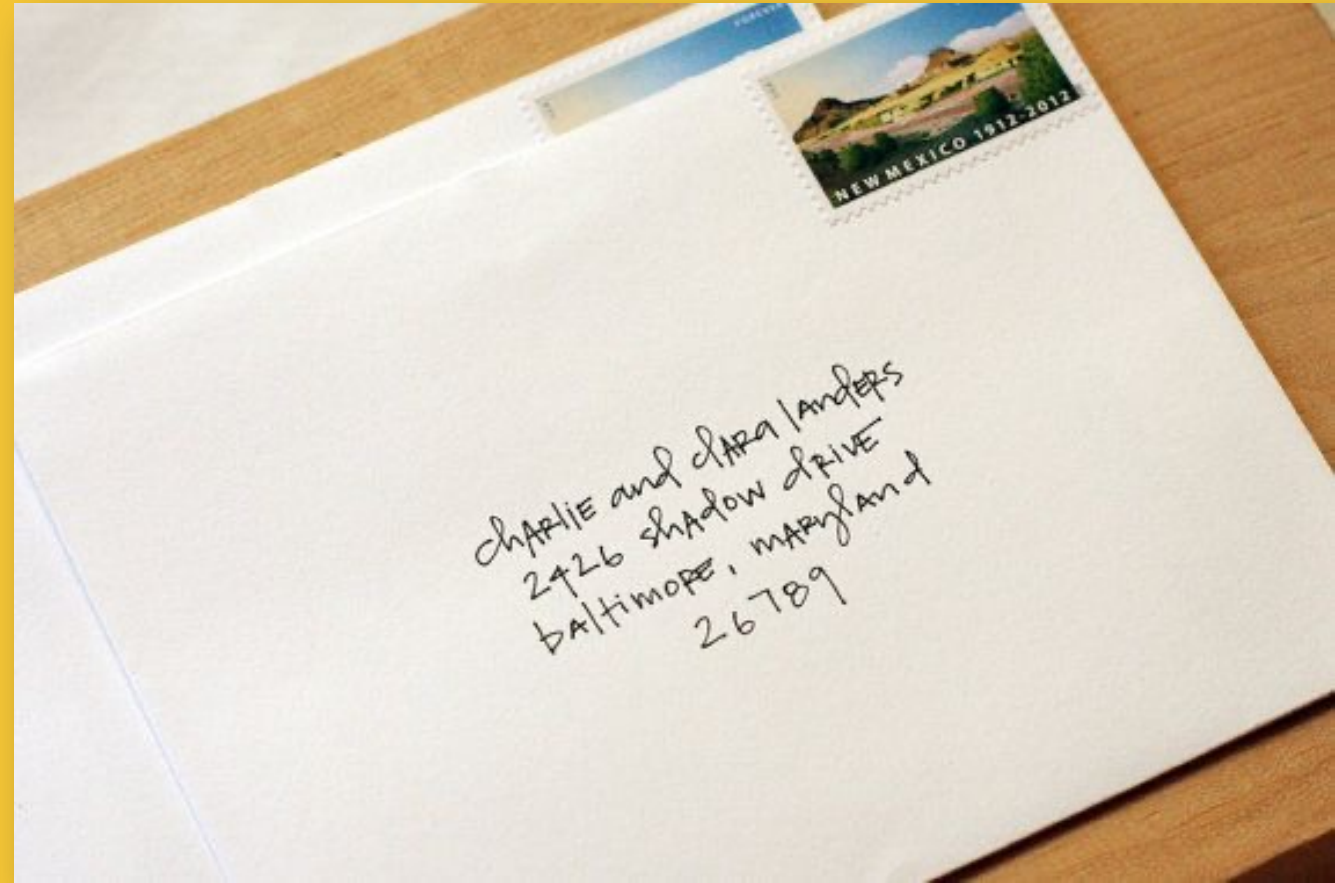 FOREVER
NEW MEXICO 1912-2012
chARlIE and clARa landERS
2426 shadow dRIVE
baltimoRE, maRyland
26789